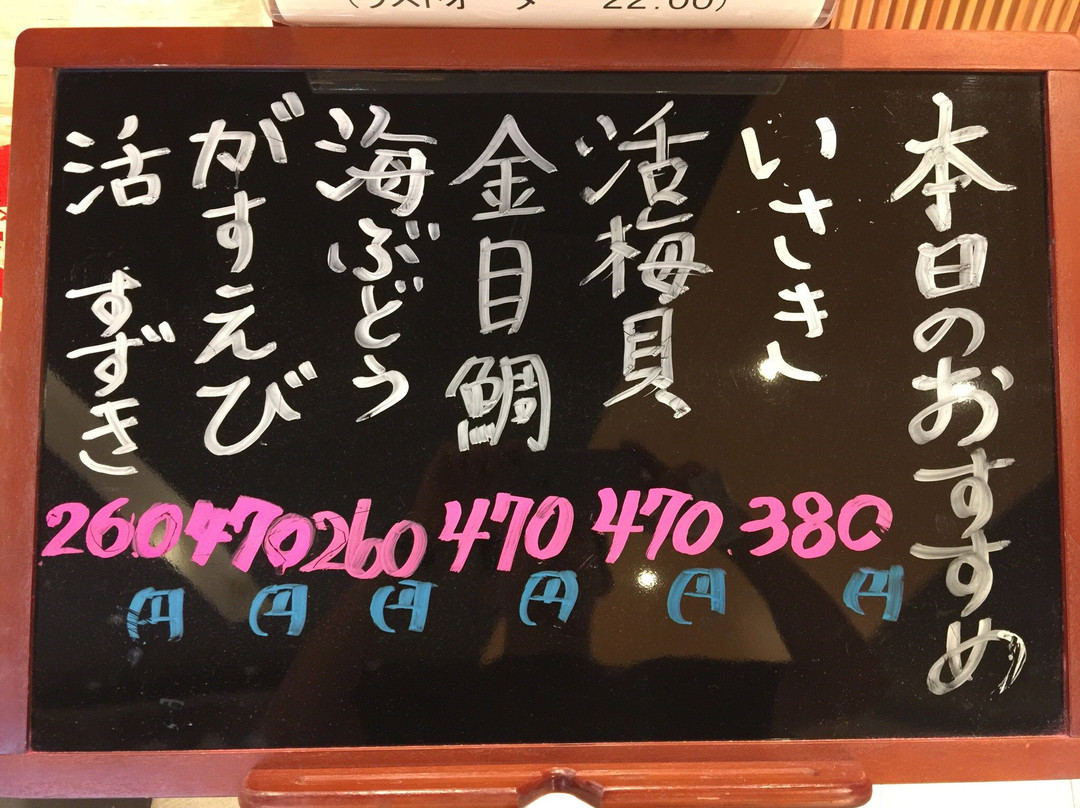 (ラストオーダー 22:00)
本日のおすすめ
いさき 380円
活梅貝 470円
金目鯛 470円
海ぶどう 260円
がすえび 470円
活 すずき 260円